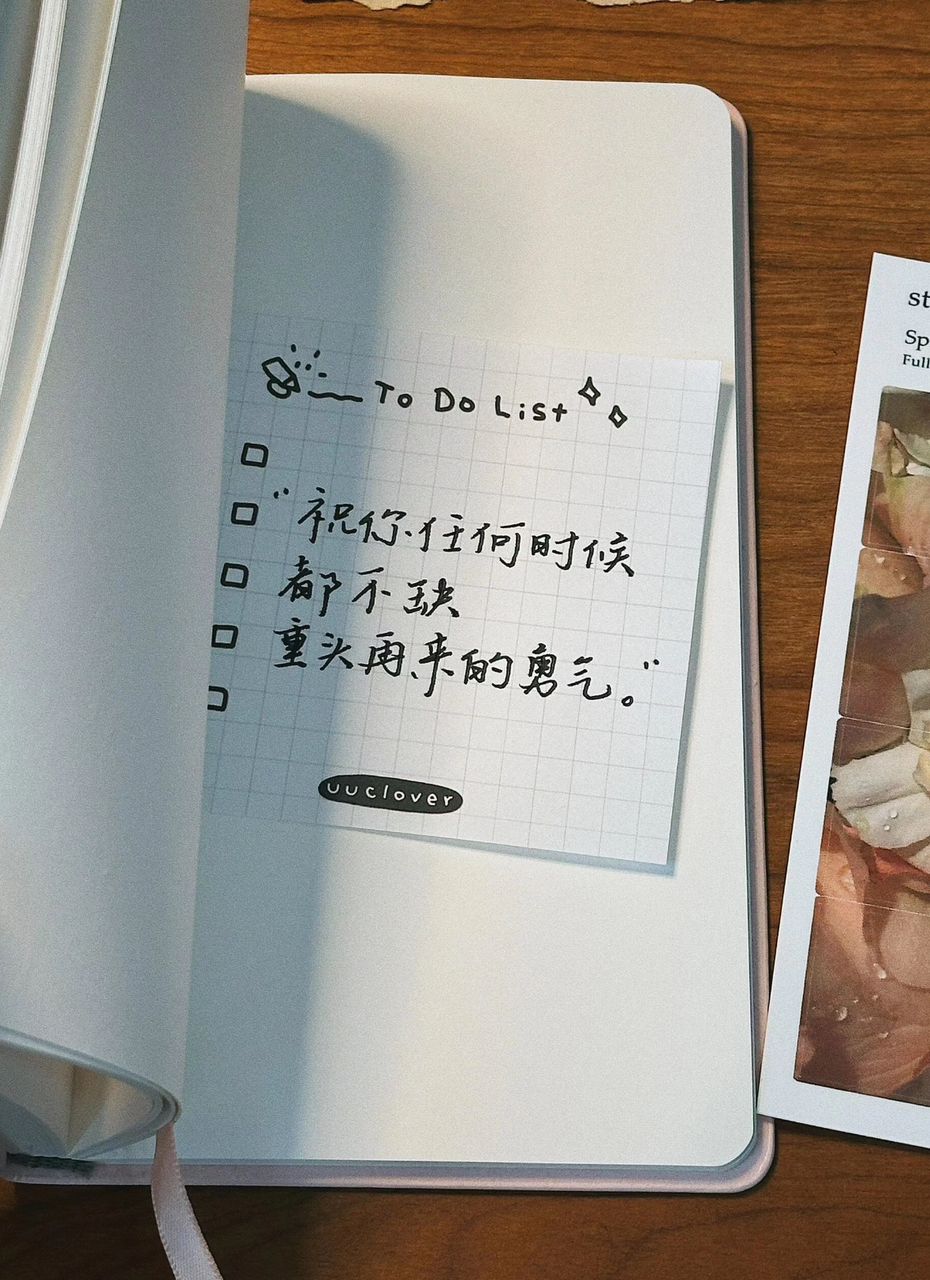 To Do List
“祝你任何时候
都不缺
重头再来的勇气。”
uuclover
st
Sp
Full